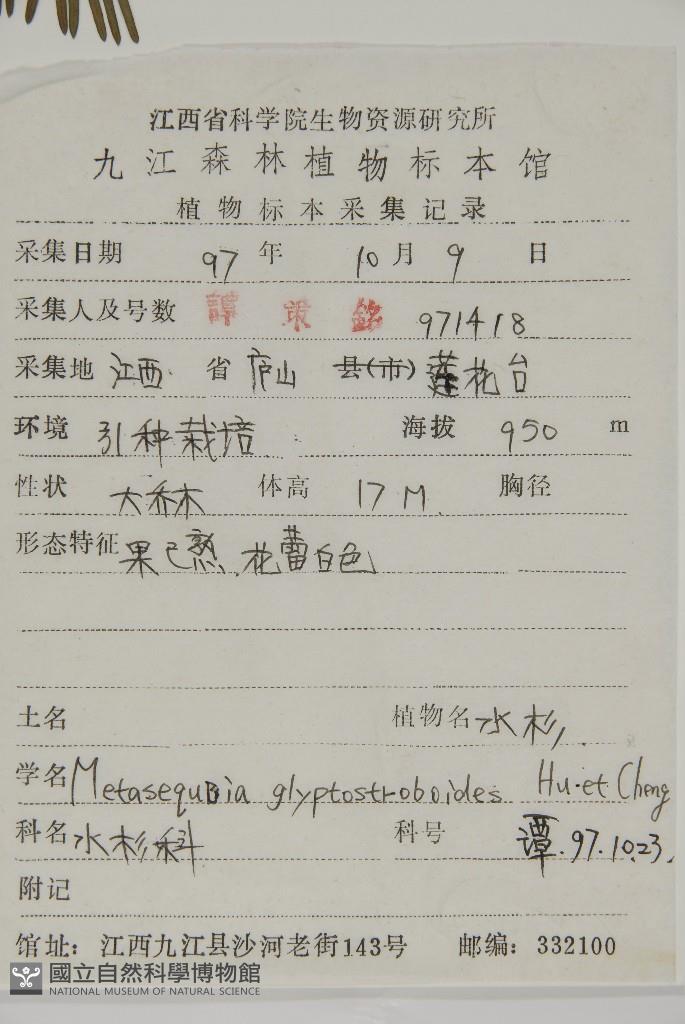 江西省科学院生物资源研究所
九江森林植物标本馆
植物标本采集记录
采集日期 97 年 10 月 9 日
采集人及号数 譚策銘 971418
采集地 江西 省 庐山 县(市) 莲花台
环境 引种栽培 海拔 950 m
性状 大乔木 体高 17 M. 胸径
形态特征 果已熟,花蕾白色
土名 植物名 水杉,
学名 Metasequoia glyptostroboides Hu·et Cheng
科名 水杉科 科号 谭.97.10.23.
附记
馆址：江西九江县沙河老街143号 邮编：332100
國立自然科學博物館
NATIONAL MUSEUM OF NATURAL SCIENCE